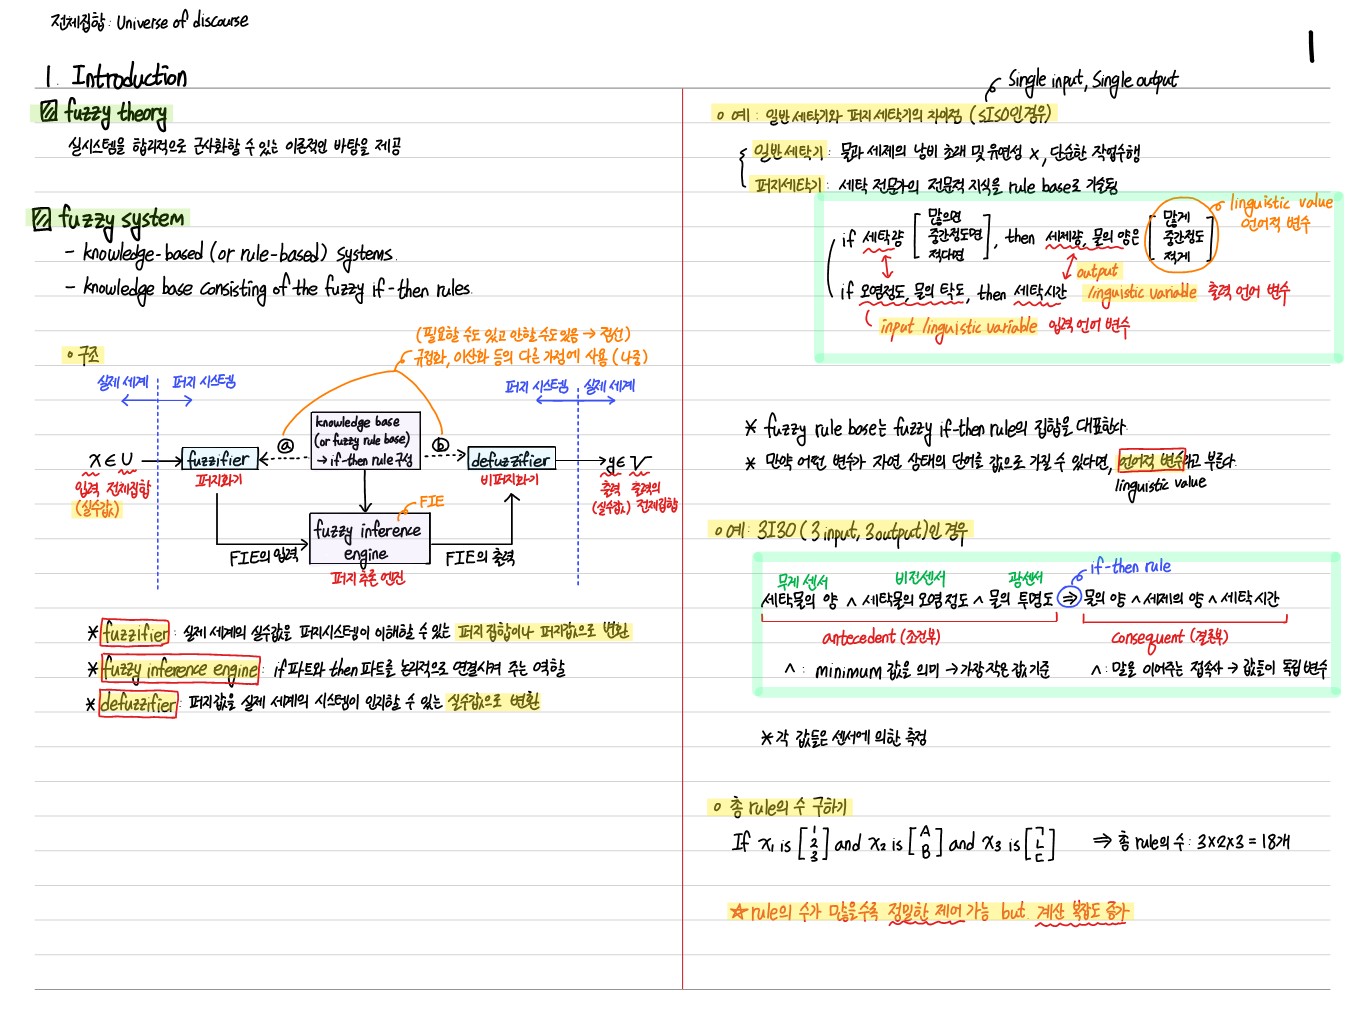 전체집합 : Universe of discourse
1
1. Introduction
fuzzy theory
실시스템을 합리적으로 근사화할 수 있는 이론적인 바탕을 제공
fuzzy system
- knowledge-based (or rule-based) systems.
- knowledge base consisting of the fuzzy if-then rules.
구조
(필요할 수도 있고 안할 수도 있음 → 점선)
규정화, 이산화 등의 다른 과정에 사용 (나중)
실제 세계 퍼지 시스템
퍼지 시스템 실제 세계
knowledge base
(or fuzzy rule base)
→ if-then rule 구성
ⓐ
ⓑ
x ∈ U
fuzzifier
defuzzifier
y ∈ V
입력 전체집합
(실수값)
퍼지화기
비퍼지화기
출력 출력의
(실수값) 전체집합
FIE
fuzzy inference
engine
FIE의 입력
FIE의 출력
퍼지 추론 엔진
* fuzzifier : 실제 세계의 실수값을 퍼지시스템이 이해할 수 있는 퍼지 집합이나 퍼지값으로 변환
* fuzzy inference engine : if파트와 then파트를 논리적으로 연결시켜 주는 역할
* defuzzifier : 퍼지값을 실제 세계의 시스템이 인지할 수 있는 실수값으로 변환
Single input, Single output
예 : 일반 세탁기와 퍼지 세탁기의 차이점 (SISO인 경우)
일반세탁기 : 물과 세제의 낭비 초래 및 유연성 x, 단순한 작업수행
퍼지세탁기 : 세탁 전문가의 전문적 지식을 rule base로 기술됨
if 세탁량 [많으면 중간정도면 적다면], then 세제량, 물의 양은 [많게 중간정도 적게]
linguistic value
언어적 변수
output
if 오염정도, 물의 탁도, then 세탁시간 linguistic variable 출력 언어 변수
input linguistic variable 입력 언어 변수
* fuzzy rule base는 fuzzy if-then rule의 집합을 대표한다.
* 만약 어떤 변수가 자연 상태의 단어를 값으로 가질 수 있다면, 언어적 변수라고 부른다.
linguistic value
예 : 3I3O (3 input, 3 output)인 경우
무게 센서 비전센서 광센서
if-then rule
세탁물의 양 ∧ 세탁물의 오염 정도 ∧ 물의 투명도 ⇒ 물의 양 ∧ 세제의 양 ∧ 세탁 시간
antecedent (조건부) consequent (결론부)
∧ : minimum 값을 의미 → 가장 작은 값 기준
∧ : 말을 이어주는 접속사 → 값들이 독립 변수
* 각 값들은 센서에 의한 측정
총 rule의 수 구하기
If x₁ is [1 2 3] and x₂ is [A B] and x₃ is [ㄱ ㄴ ㄷ] ⇒ 총 rule의 수 : 3x2x3 = 18개
☆ rule의 수가 많을수록 정밀한 제어 가능 but 계산 복잡도 증가